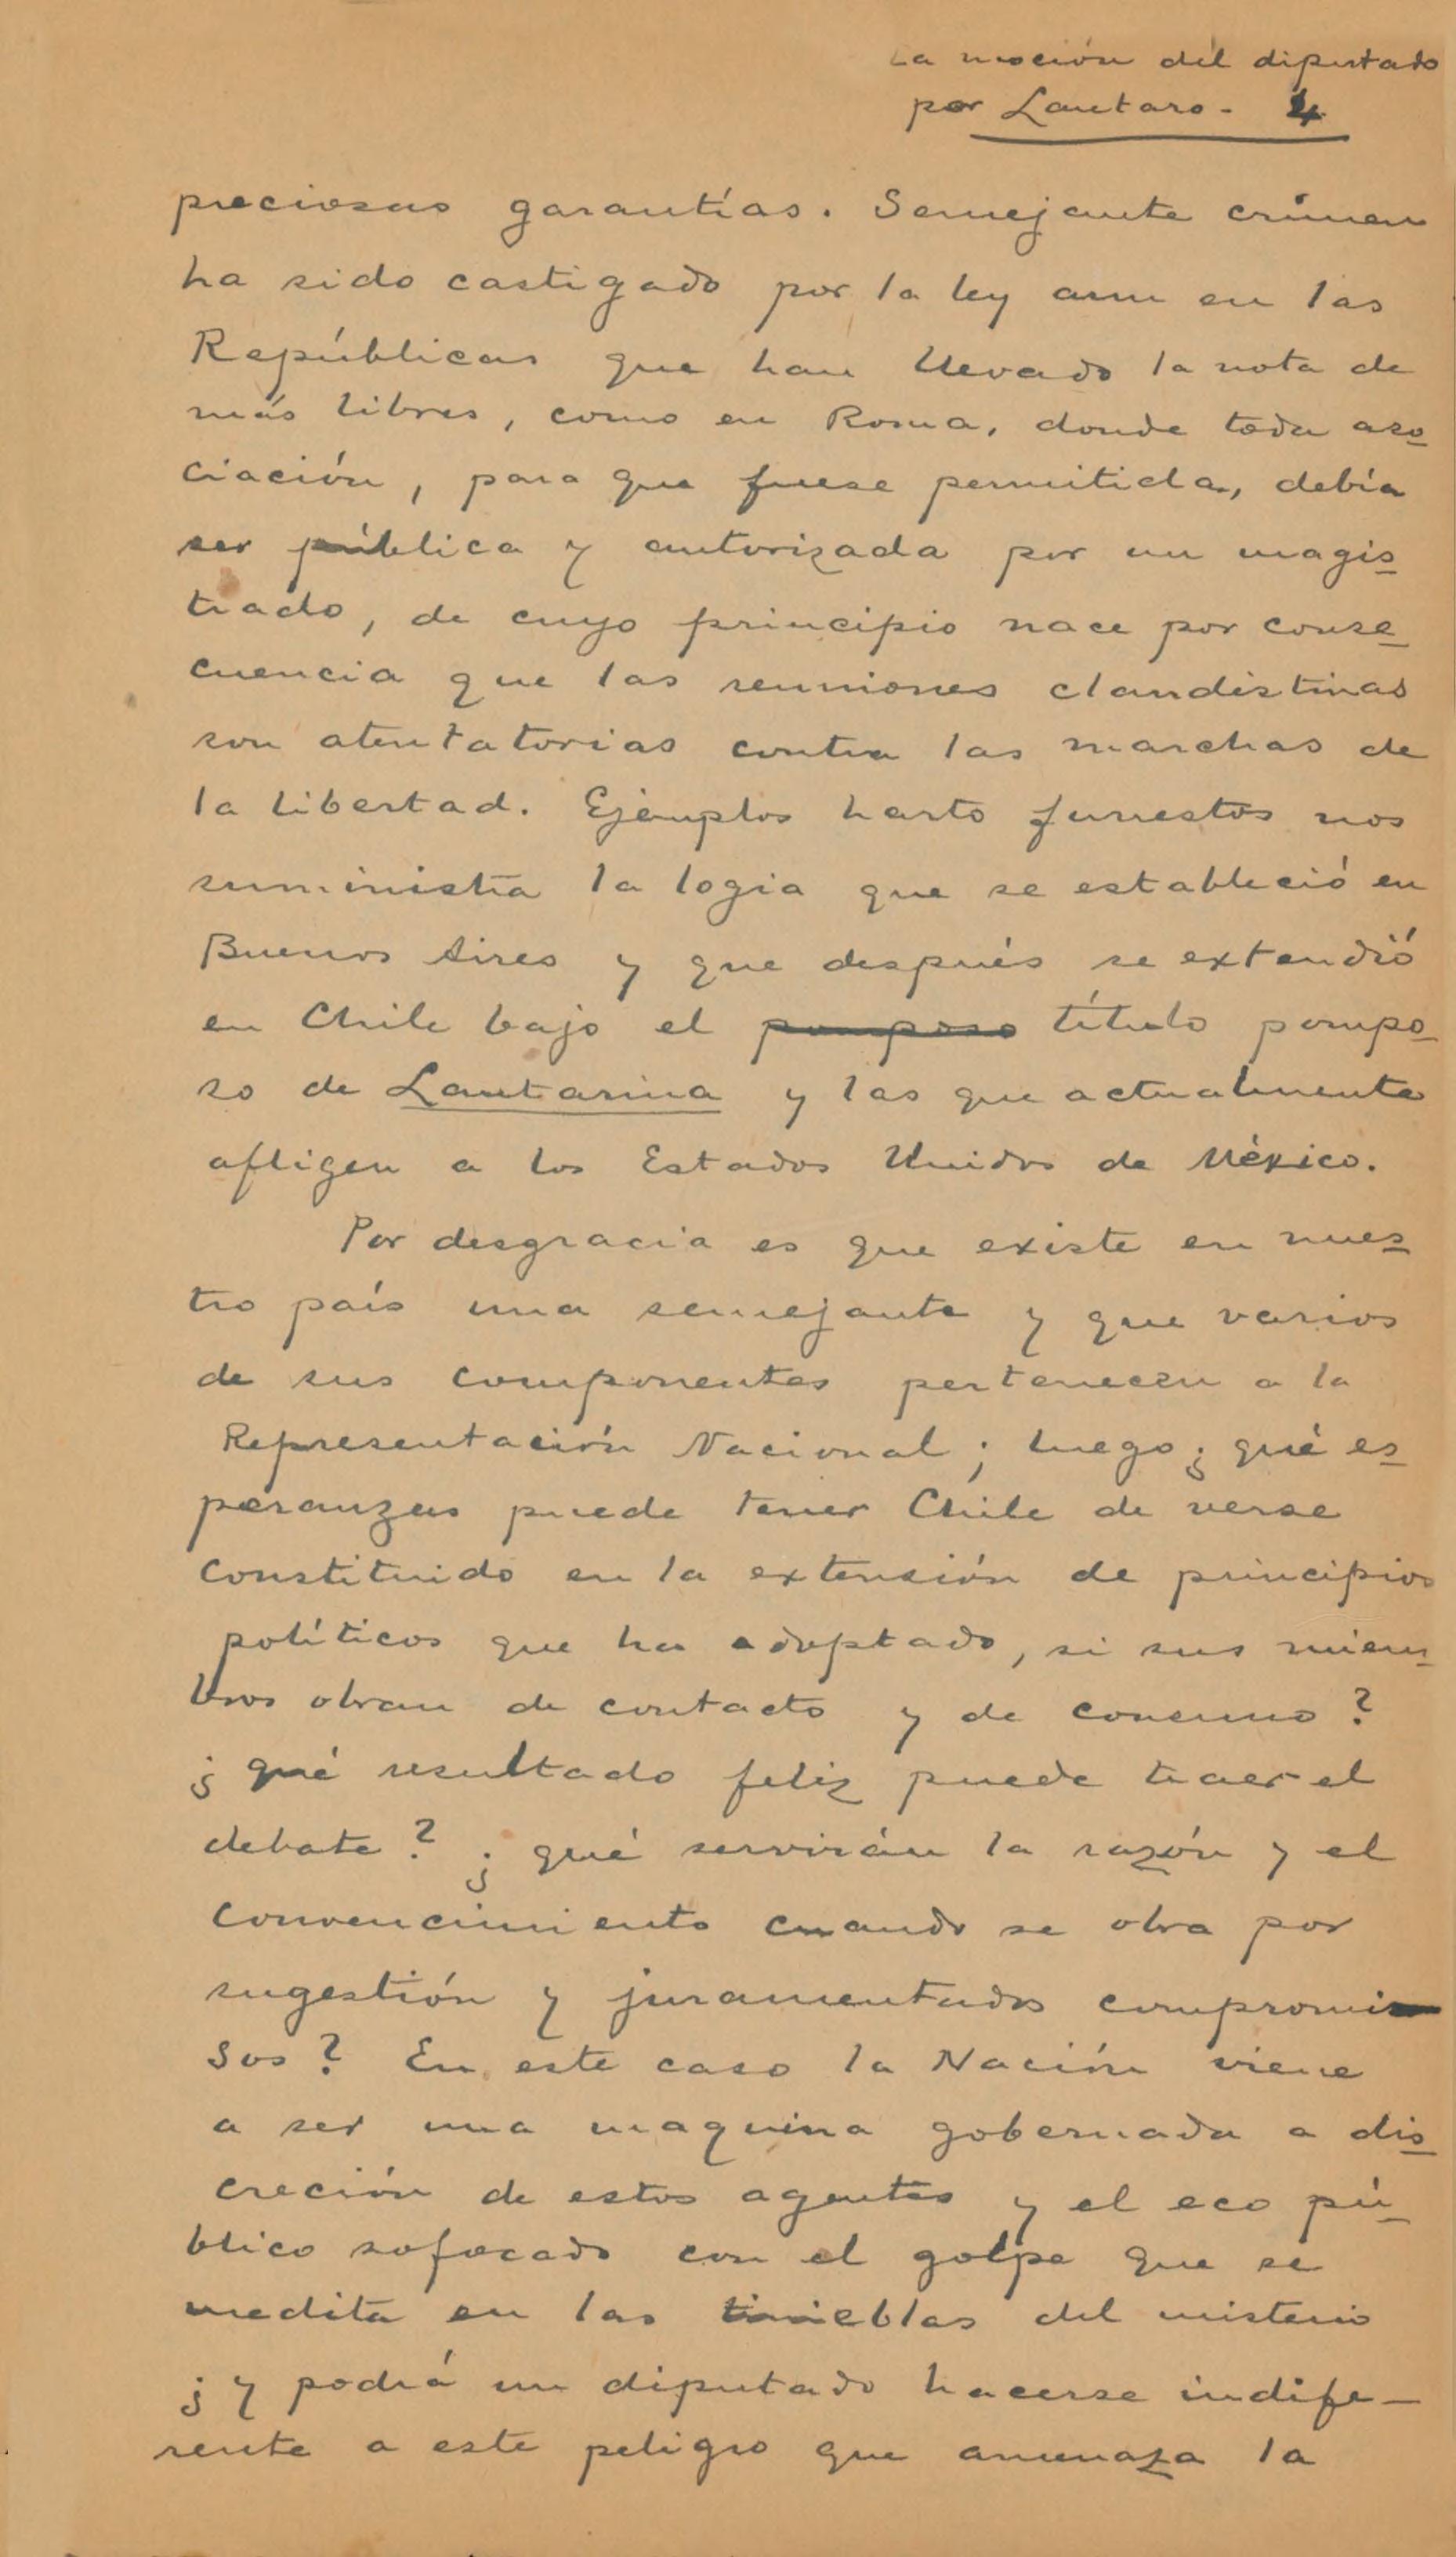 La moción del diputado
por Lautaro - 4
preciosas garantías. Semejante crímen
ha sido castigado por la ley aun en las
Repúblicas que han llevado la nota de
más libres, como en Roma, donde toda aso
ciación, para que fuese permitida, debía
ser pública y autorizada por un magis
trado, de cuyo principio nace por conse
cuencia que las reuniones clandistinas
son atentatorias contra las marchas de
la libertad. Ejemplos harto funestos nos
suministra la logia que se estableció en
Buenos Aires y que después se extendió
en Chile bajo el pomposo título pompo
so de Lautarina y las que actualmente
afligen a los Estados Unidos de México.
Por desgracia es que existe en nues
tro país una semejante y que varios
de sus componentes pertenecen a la
Representación Nacional; luego ¿qué es
peranzas puede tener Chile de verse
constituido en la extensión de principios
políticos que ha adoptado, si sus miem
bros obran de contacto y de consuno?
¿qué resultado feliz puede traer el
debate? ¿qué servirán la razón y el
convencimiento cuando se obra por
sugestión y juramentados compromi
sos? En este caso la Nación viene
a ser una maquina gobernada a dis
creción de estos agentes y el eco pú
blico sofocado con el golpe que se
medita en las tinieblas del misterio
¿y podrá un diputado hacerse indife-
rente a este peligro que amenaza la